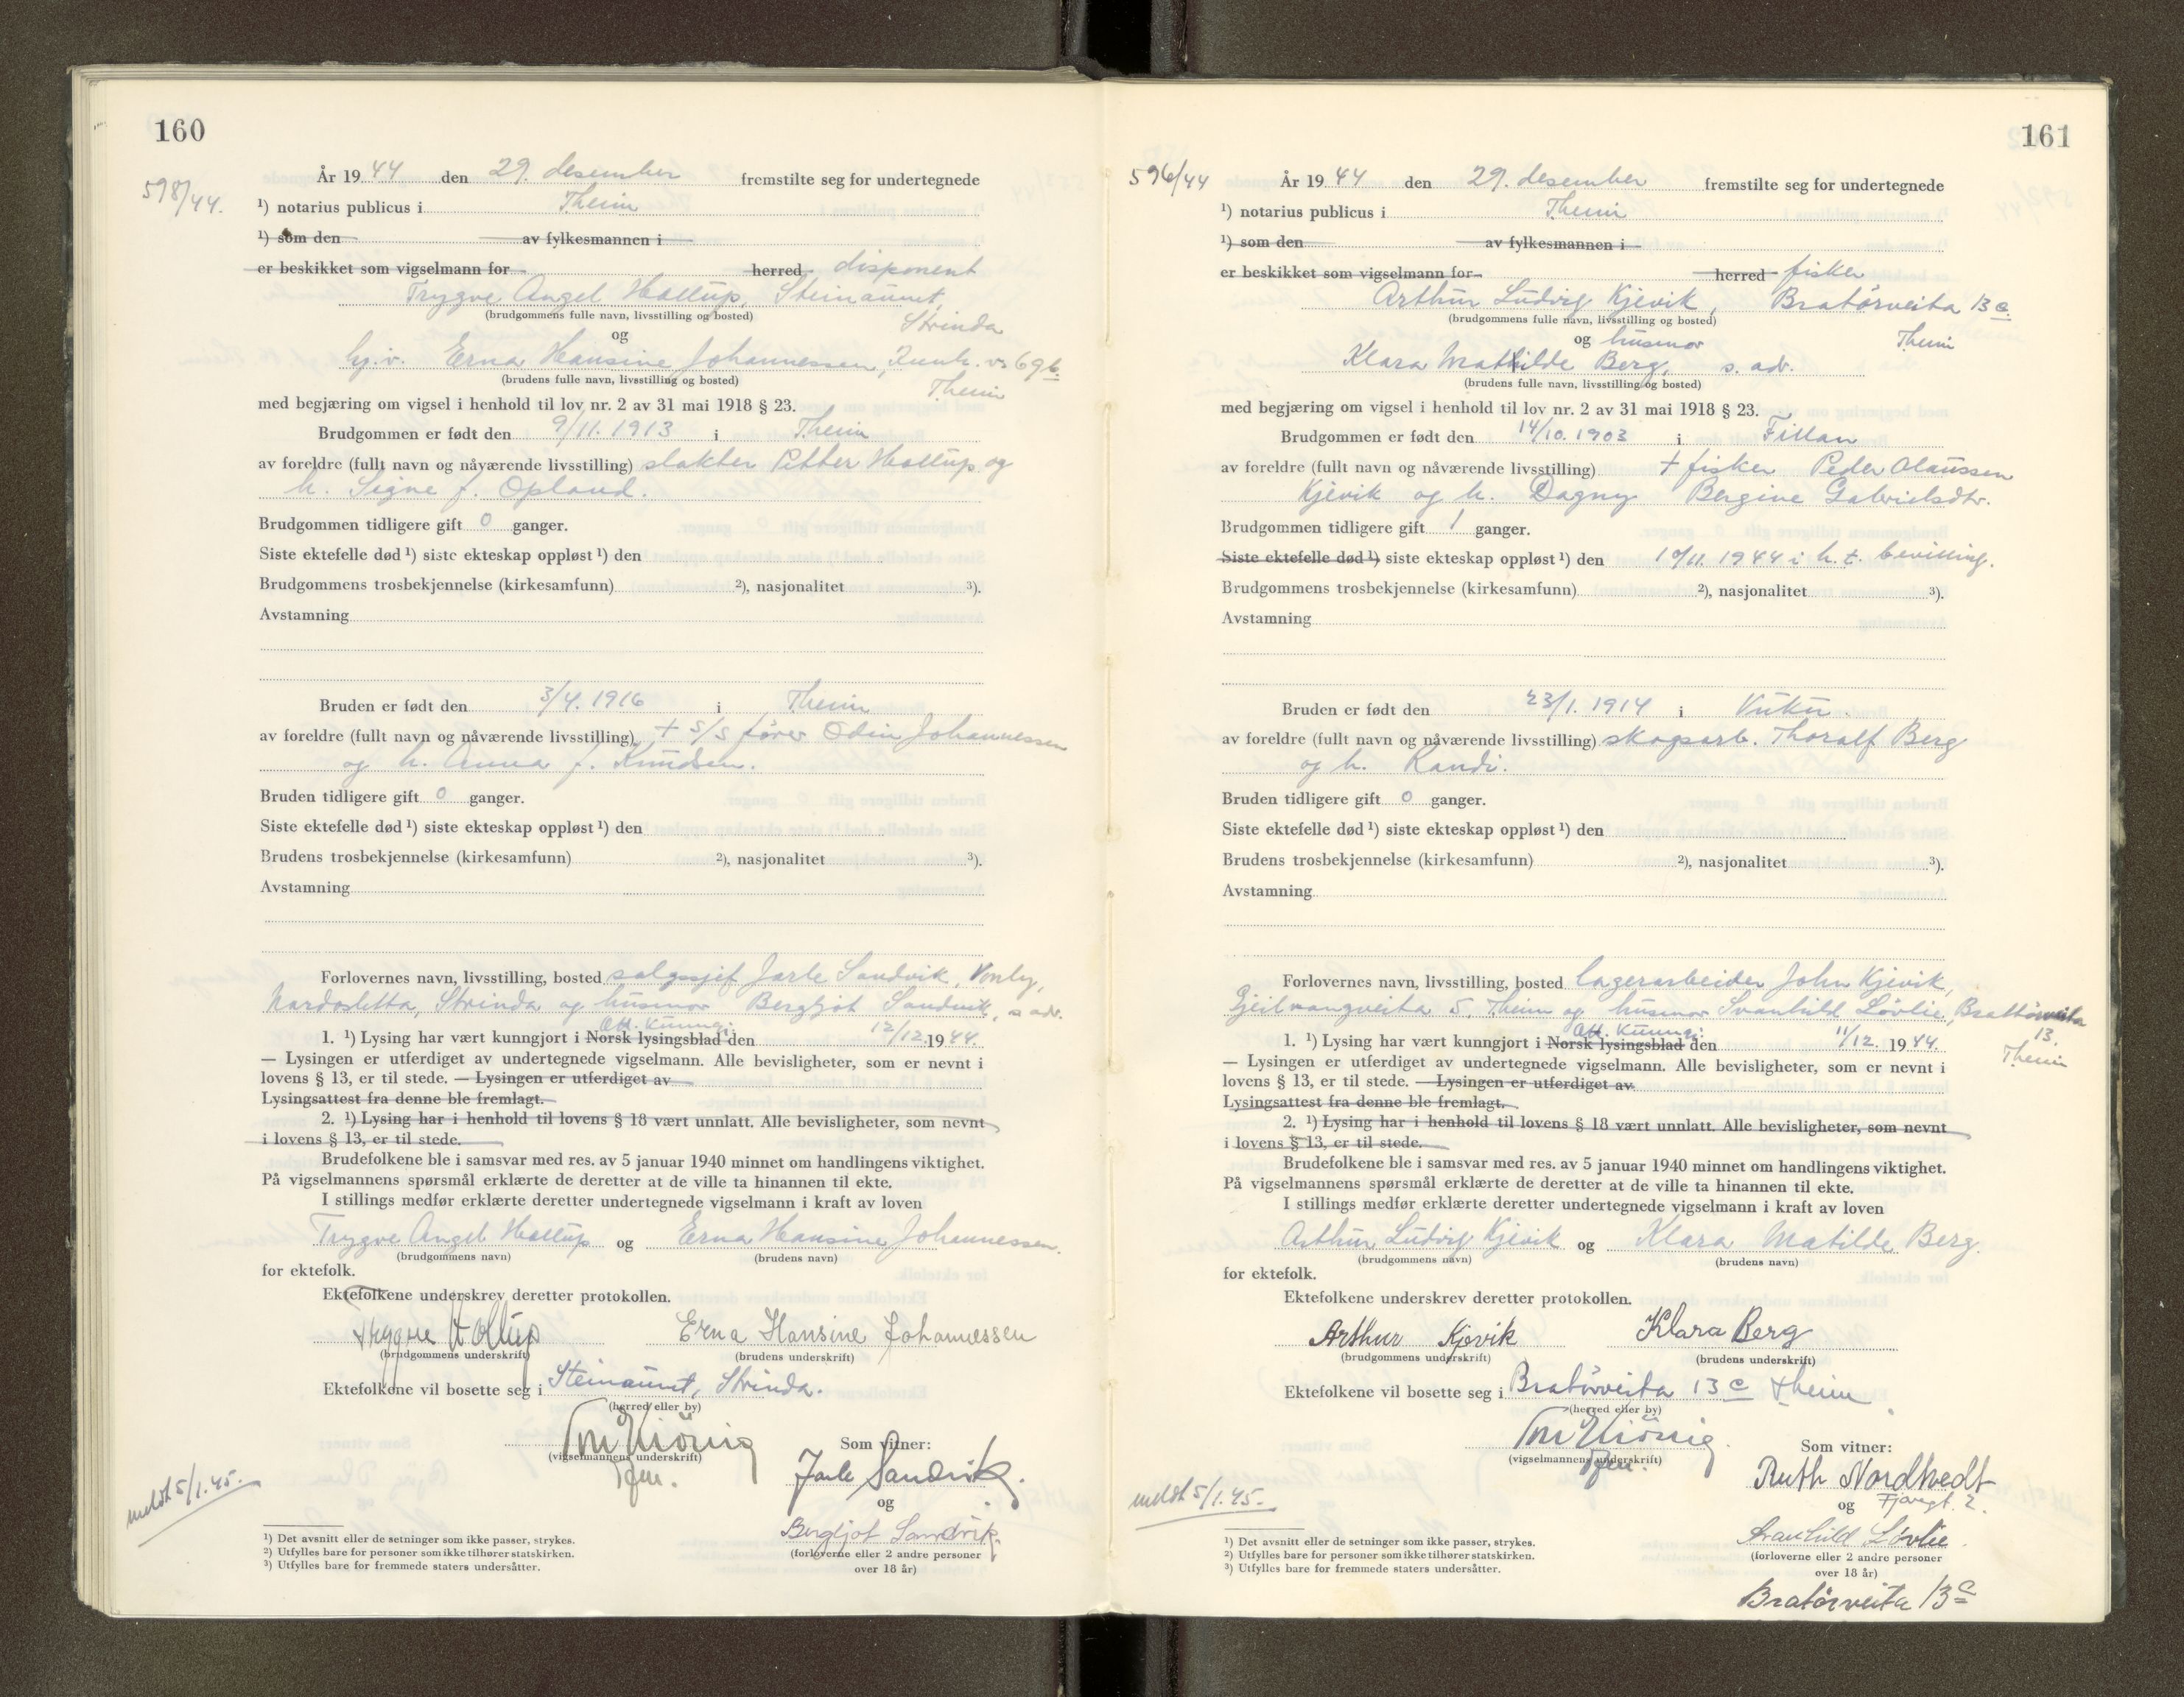 160
598/44.
År 1944 den 29. desember fremstilte seg for undertegnede
¹) notarius publicus i Theim
¹) som den av fylkesmannen i
er beskikket som vigselmann for herred disponent
Trygve Angel Holtup, Steinaunet,
(brudgommens fulle navn, livsstilling og bosted) Strinda
og
hj.v. Erna Hansine Johannessen, v. 69b.
(brudens fulle navn, livsstilling og bosted) Theim
med begjæring om vigsel i henhold til lov nr. 2 av 31 mai 1918 § 23.
Brudgommen er født den 9/11. 1913 i Theim
av foreldre (fullt navn og nåværende livsstilling) slakter Petter Holtup og
h. Signe f. Opland.
Brudgommen tidligere gift 0 ganger.
Siste ektefelle død ¹) siste ekteskap oppløst ¹) den
Brudgommens trosbekjennelse (kirkesamfunn) ²), nasjonalitet ³).
Avstamning
Bruden er født den 3/4. 1916 i Theim
av foreldre (fullt navn og nåværende livsstilling) + s/s fører Odin Johannessen
og h. Anna f. Knudsen.
Bruden tidligere gift 0 ganger.
Siste ektefelle død ¹) siste ekteskap oppløst ¹) den
Brudens trosbekjennelse (kirkesamfunn) ²), nasjonalitet ³).
Avstamning
Forlovernes navn, livsstilling, bosted salgssjef Jarle Sandvik, Vonly,
Nardosletta, Strinda og husmor Bergljot Sandvik, s. adr.
Off. Kunngj.
1. ¹) Lysing har vært kunngjort i Norsk lysingsblad den 12/12. 1944.
— Lysingen er utferdiget av undertegnede vigselmann. Alle bevisligheter, som er nevnt i
lovens § 13, er til stede. — Lysingen er utferdiget av
Lysingsattest fra denne ble fremlagt.
2. ¹) Lysing har i henhold til lovens § 18 vært unnlatt. Alle bevisligheter, som nevnt
i lovens § 13, er til stede.
Brudefolkene ble i samsvar med res. av 5 januar 1940 minnet om handlingens viktighet.
På vigselmannens spørsmål erklærte de deretter at de ville ta hinannen til ekte.
I stillings medfør erklærte deretter undertegnede vigselmann i kraft av loven
Trygve Angel Holtup og Erna Hansine Johannessen.
(brudgommens navn) (brudens navn)
for ektefolk.
Ektefolkene underskrev deretter protokollen.
Trygve Holtup Erna Hansine Johannessen
(brudgommens underskrift) (brudens underskrift)
Ektefolkene vil bosette seg i Steinaunet, Strinda.
(herred eller by)
(vigselmannens underskrift) Som vitner:
fm. Jarle Sandvik.
meldt 5/1.45. og
Bergljot Sandvik.
(forloverne eller 2 andre personer
over 18 år)
¹) Det avsnitt eller de setninger som ikke passer, strykes.
²) Utfylles bare for personer som ikke tilhører statskirken.
³) Utfylles bare for fremmede staters undersåtter.
161
596/44
År 1944 den 29. desember fremstilte seg for undertegnede
¹) notarius publicus i Theim
¹) som den av fylkesmannen i
er beskikket som vigselmann for herred fisker
Arthur Ludvig Kjevik, Bratørveita 13 c.
(brudgommens fulle navn, livsstilling og bosted)
og husmor Theim
Klara Matilde Berg, s. adr.
(brudens fulle navn, livsstilling og bosted)
med begjæring om vigsel i henhold til lov nr. 2 av 31 mai 1918 § 23.
Brudgommen er født den 14/10. 1903 i Fillan
av foreldre (fullt navn og nåværende livsstilling) + fisker Peder Olaussen
Kjevik og h. Dagny Bergine Gabrielsdtr.
Brudgommen tidligere gift 1 ganger.
Siste ektefelle død ¹) siste ekteskap oppløst ¹) den 10/11. 1944 i h. t. bevilling.
Brudgommens trosbekjennelse (kirkesamfunn) ²), nasjonalitet ³).
Avstamning
Bruden er født den 23/1. 1914 i Vuku.
av foreldre (fullt navn og nåværende livsstilling) skogsarb. Thoralf Berg
og h. Randi.
Bruden tidligere gift 0 ganger.
Siste ektefelle død ¹) siste ekteskap oppløst ¹) den
Brudens trosbekjennelse (kirkesamfunn) ²), nasjonalitet ³).
Avstamning
Forlovernes navn, livsstilling, bosted lagerarbeider John Kjevik,
Gjeilvangveita 5, Theim og husmor Svanhild Løvlie, Brattørveita
13,
Theim
Off. Kunngj.
1. ¹) Lysing har vært kunngjort i Norsk lysingsblad den 11/12. 1944.
— Lysingen er utferdiget av undertegnede vigselmann. Alle bevisligheter, som er nevnt i
lovens § 13, er til stede. — Lysingen er utferdiget av
Lysingsattest fra denne ble fremlagt.
2. ¹) Lysing har i henhold til lovens § 18 vært unnlatt. Alle bevisligheter, som nevnt
i lovens § 13, er til stede.
Brudefolkene ble i samsvar med res. av 5 januar 1940 minnet om handlingens viktighet.
På vigselmannens spørsmål erklærte de deretter at de ville ta hinannen til ekte.
I stillings medfør erklærte deretter undertegnede vigselmann i kraft av loven
Arthur Ludvig Kjevik og Klara Matilde Berg.
(brudgommens navn) (brudens navn)
for ektefolk.
Ektefolkene underskrev deretter protokollen.
Arthur Kjevik Klara Berg
(brudgommens underskrift) (brudens underskrift)
Ektefolkene vil bosette seg i Bratørveita 13 c Theim
(herred eller by)
(vigselmannens underskrift) Som vitner:
fm. Ruth Nordtvedt
meldt 5/1.45. og Fjæregt. 2.
Svanhild Løvlie
(forloverne eller 2 andre personer
over 18 år)
Bratørveita 13 c
¹) Det avsnitt eller de setninger som ikke passer, strykes.
²) Utfylles bare for personer som ikke tilhører statskirken.
³) Utfylles bare for fremmede staters undersåtter.